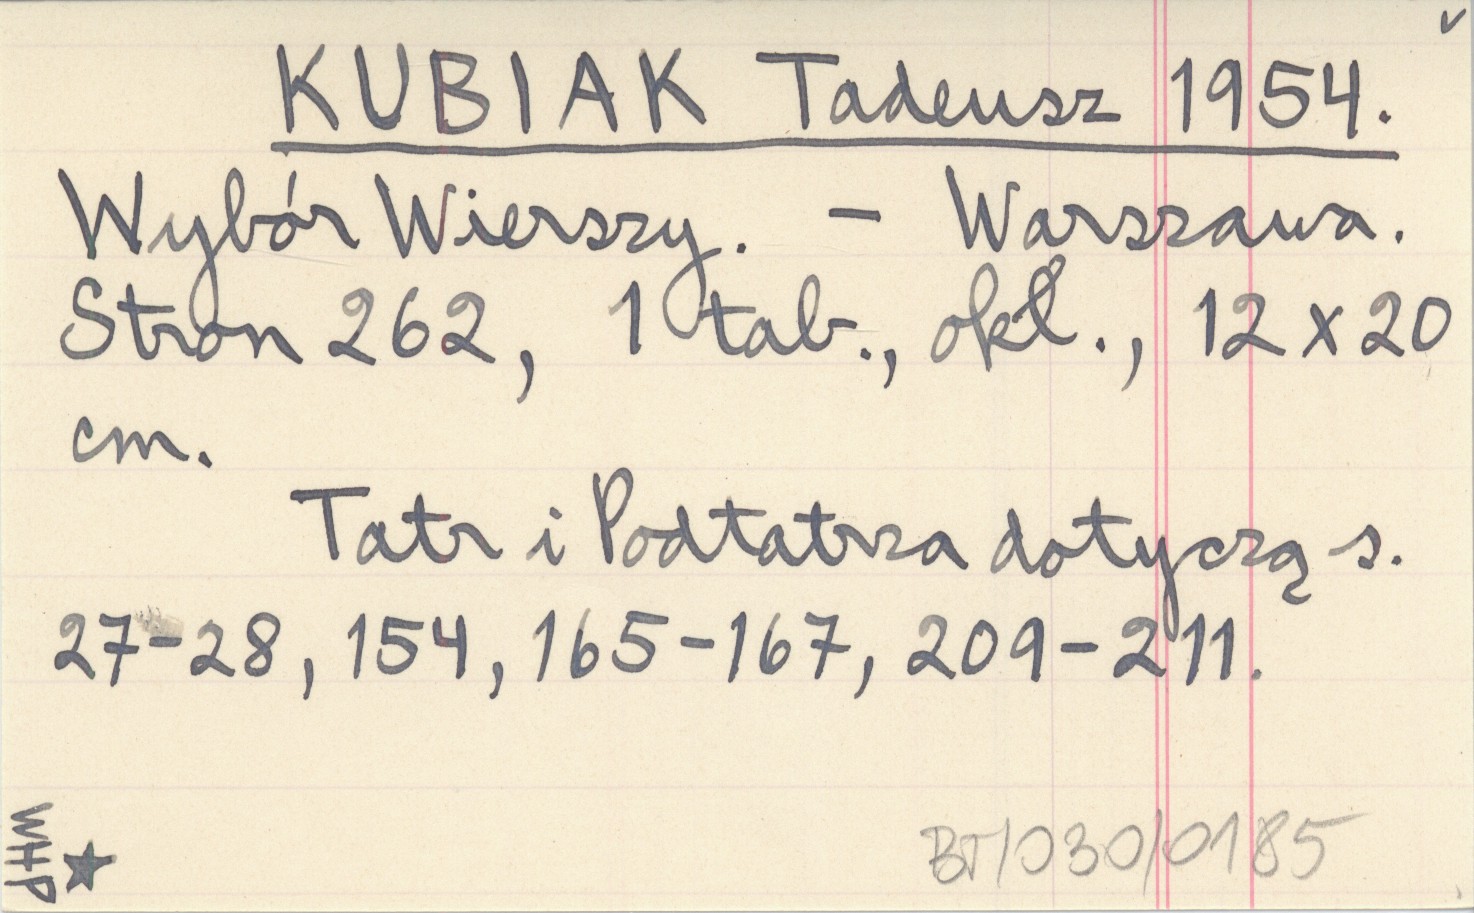 KUBIAK Tadeusz 1954.
Wybór Wierszy. – Warszawa.
Stron 262, 1 tab., okł., 12 x 20
cm.
Tatr i Podtatrza dotyczą s.
27-28, 154, 165-167, 209-211.
WHP
BT/030/0185